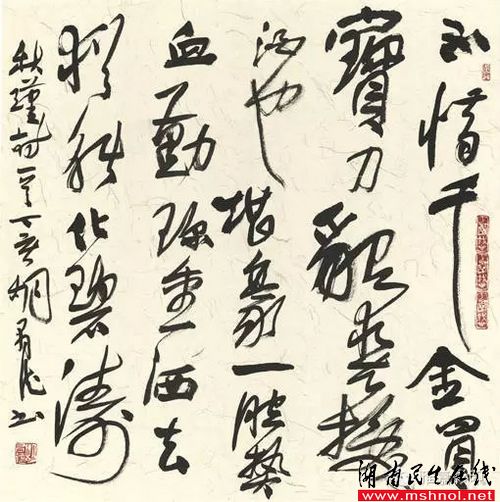 不惜千金買
寶刀貂裘換
酒也堪豪一腔熱
血勤珍重洒去
猶能化碧濤
秋瑾詩一首丁亥胡书
湖南民生在线
www.mshnol.net